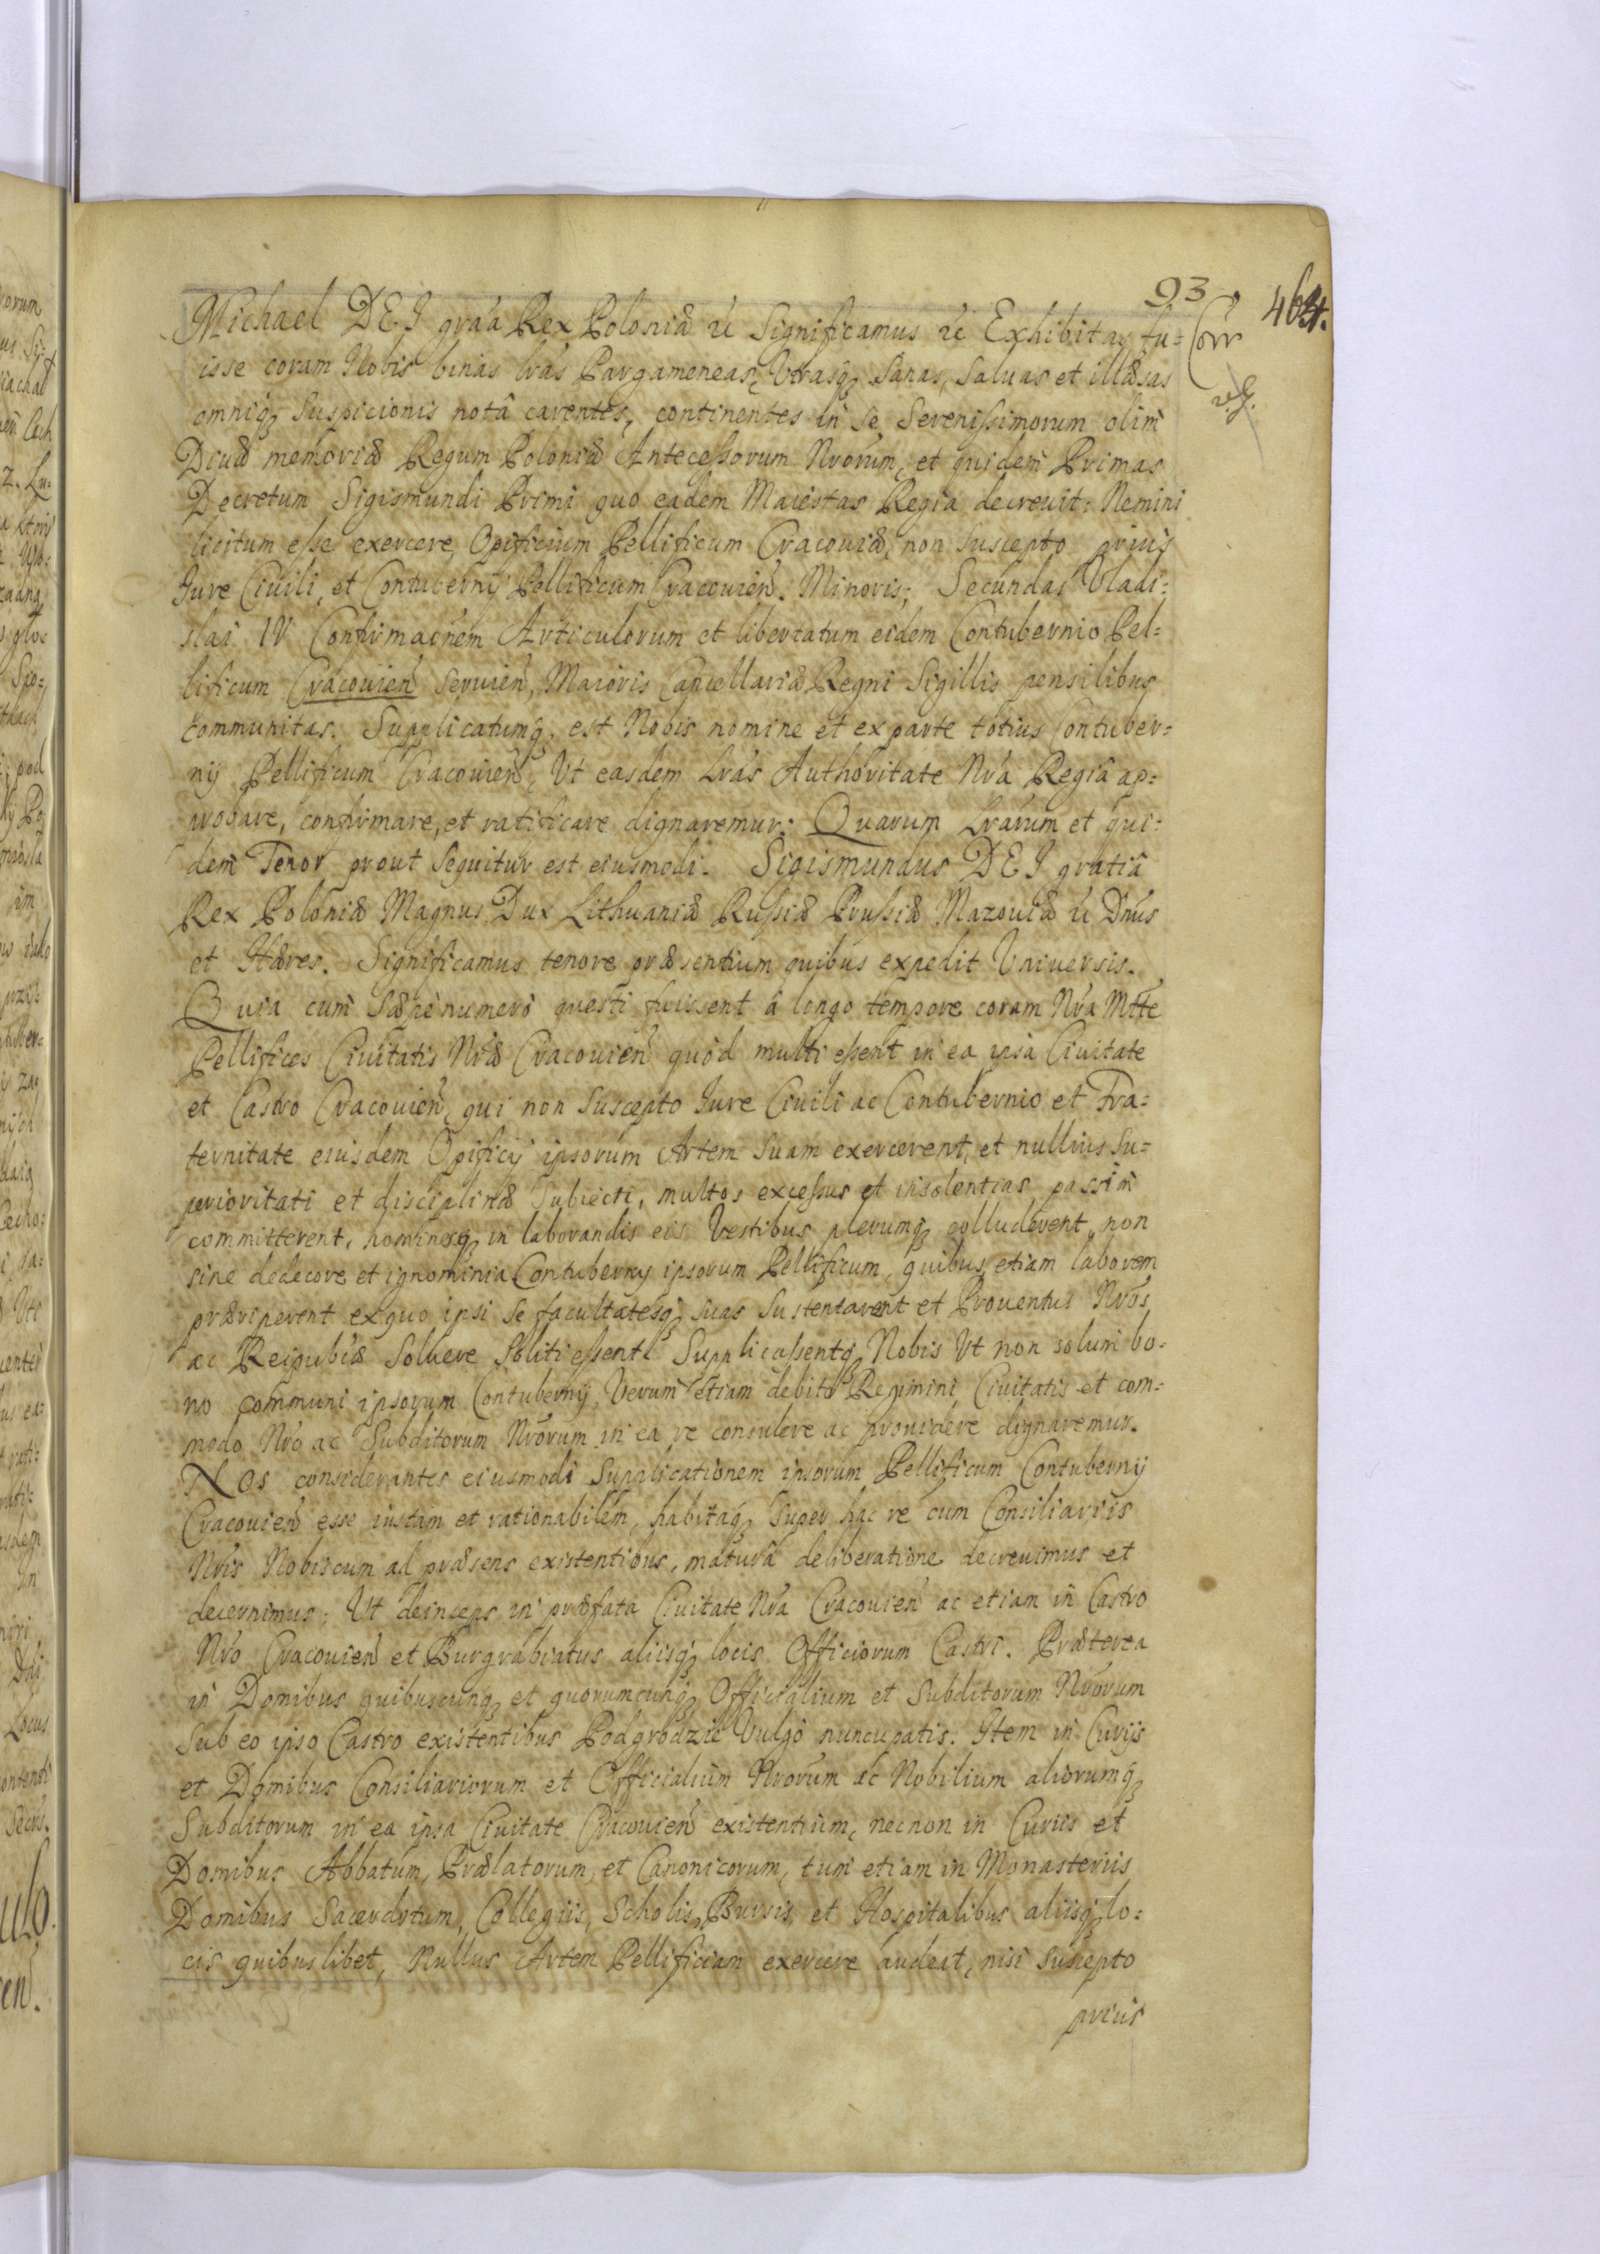 93
464.
Michael DEI gra͞a Rex Poloniæ &c Significamus &c Exhibitas fu-
isse coram Nobis binas lr̃as Pargameneas, Vtrasq3 Sanas, Saluas et illæsas
omniq3 Suspicionis notâ carentes, continentes in se Serenissimorum olim
Diuæ memoriæ Regum Poloniæ Antecessorum Nr̃orum, et quidem Primas
Decretum Sigismundi Primi quo eadem Maiestas Regia decreuit: Nemini
licitum esse exercere Opificium Pellificum Cracouiæ, non suscepto prius
Iure Ciuili, et Contubernij Pellificum Cracouien̄. Minoris; Secundas Vladi-
slai IV Confirmac̃nem Articulorum et libertatum eidem Contubernio Pel-
lificum Cracouien̄ Seruien̄, Maioris Cancellariæ Regni Sigillis pensilibus
communitas. Supplicatumq3 est Nobis nomine et ex parte totius Contuber-
nij Pellificum Cracouien̄, Vt easdem Lr̃as Authoritate Nr̃a Regiâ ap-
probare, confirmare, et ratificare dignaremur: Quarum Lr̃arum et qui-
dem Tenor prout Sequitur est eiusmodi. Sigismundus DEI gratiâ
Rex Poloniæ Magnus Dux Lithuaniæ Russiæ Prussiæ Mazouiæ &c Dn̄us
et Hæres. Significamus tenore præsentium quibus expedit Vniuersis.
Quia cum Sæpenumero questi fuissent â longo tempore coram Nr̃a Mtte
Pellifices Ciuitatis Nr̃æ Cracouien̄ quòd multi essent in ea ipsa Ciuitate
et Castro Cracouien̄, qui non Suscepto Iure Ciuili ac Contubernio et Fra-
ternitate eiusdem Opificij ipsorum Artem suam exercerent, et nullius Su-
perioritati et disciplinæ Subiecti, multos excessus et insolentias passim
committerent, hominesq3 in laborandis eis Vestibus plerumq3 colluderent, non
sine dedecore et ignominia Contubernij ipsorum Pellificum, quibus etiam laborem
præriperent ex quo ipsi se facultatesq3 suas Sustentarent et Prouentus Nr̃os
ac Reipub͞cæ Soluere Soliti essent. Supplicassentq3 Nobis Vt non solum bo-
no communi ipsorum Contubernij, Verum etiam debito Regimini Ciuitatis et com-
modo Nr̃o ac Subditorum Nr̃orum in ea re consulere ac prouidere dignaremur.
NOS considerantes eiusmodi Supplicationem ipsorum Pellificum Contubernij
Cracouien̄ esse iustam et rationabilem, habitaq3 Super hac re cum Consiliariis
Nr̃is Nobiscum ad præsens existentibus, maturâ deliberatione decreuimus et
decernimus; Vt deinceps in præfata Ciuitate Nr̃a Cracouien̄ ac etiam in Castro
Nr̃o Cracouien̄ et Burgrabiatus aliisq3 locis Officiorum Castri. Præterea
in Domibus quibuscunq3 et quorumcunq3 Officialium et Subditorum Nr̃orum
Sub eo ipso Castro existentibus Podgrodzie Vulgò nuncupatis. Item in Curijs
et Domibus Consiliariorum et Officialium Nr̃orum ac Nobilium aliorumq3
Subditorum in ea ipsa Ciuitate Cracouien̄ existentium, nec non in Curiis et
Domibus Abbatum, Prælatorum, et Canonicorum, tum etiam in Monasteriis
Domibus Sacerdotum, Collegiis, Scholis, Bursis, et Hospitalibus aliisq3 lo-
cis quibuslibet, Nullus Artem Pellificiam exercere audeat, nisi suscepto
prius